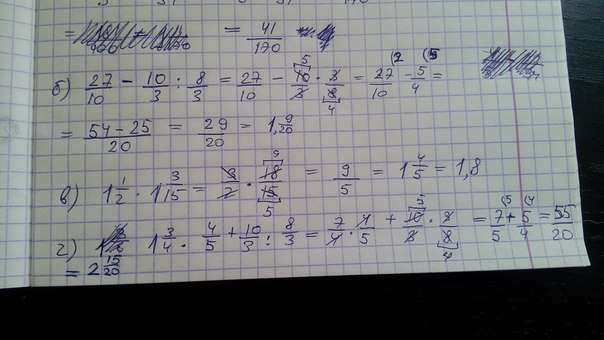 = 41/170
б) 27/10 - 10/3 : 8/3 = 27/10 - 10/3 · 3/8 = 27/10 - 5/4 =
= 54-25/20 = 29/20 = 1 9/20
в) 1 1/2 · 1 3/15 = 3/2 · 18/15 = 9/5 = 1 4/5 = 1,8
г) 1 3/4 · 4/5 + 10/3 : 8/3 = 7/4 · 4/5 + 10/3 · 3/8 = 7/5 + 5/4 = 55/20
= 2 15/20